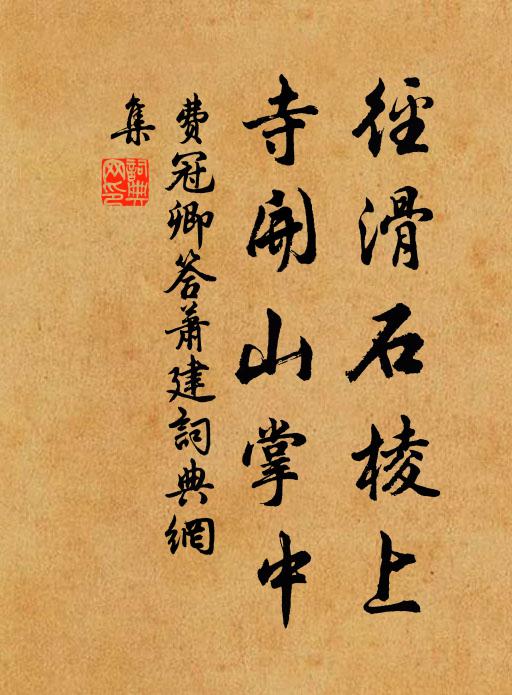 徑滑石棱上
寺開山掌中
費冠卿答蕭建詞典網
集
詞典網印